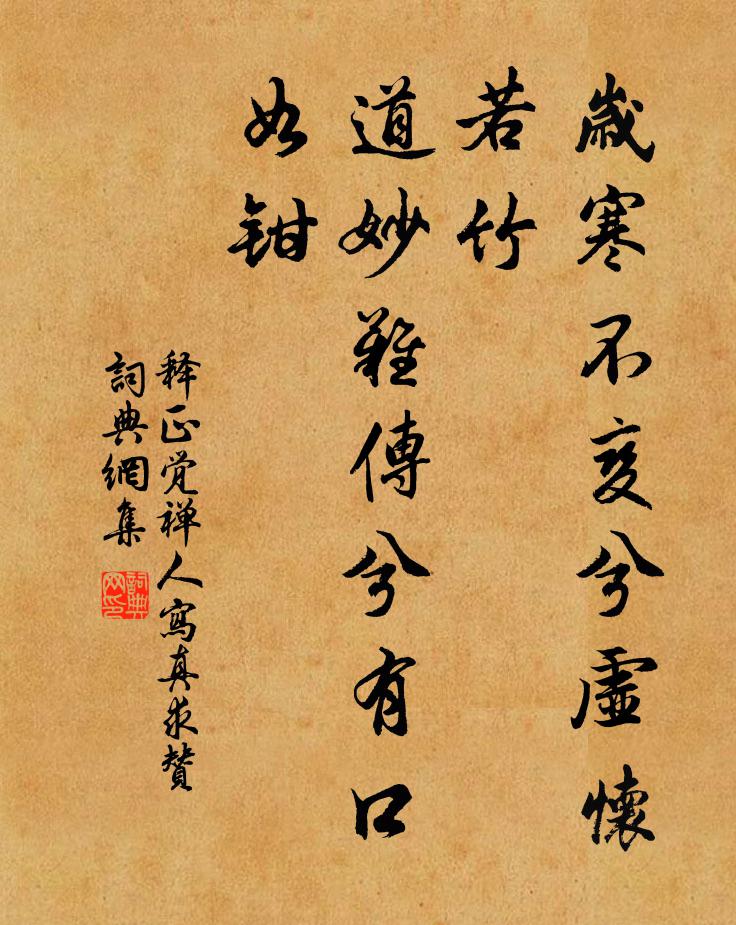 歲寒不变兮虛懷
若竹
道妙難傳兮有口
如鉗
释正覚禅人寫真求贊
詞典網集
詞典
网印